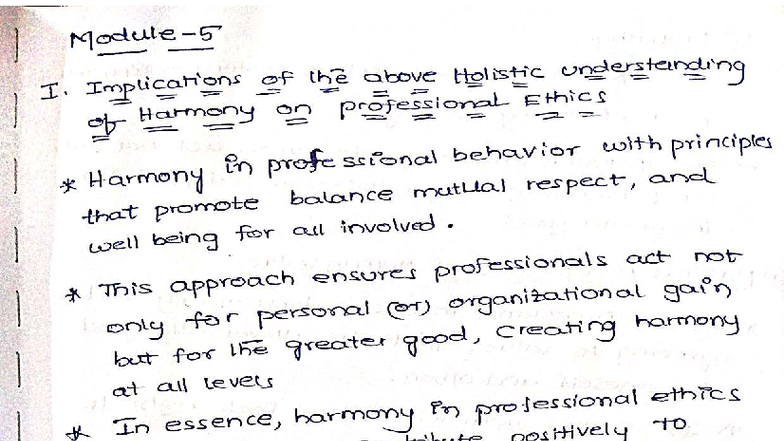 Module-5
I. Implications of the above Holistic understanding
of Harmony on professional Ethics
* Harmony in professional behavior with principles
that promote balance mutual respect, and
well being for all involved.
* This approach ensures professionals act not
only for personal (or) organizational gain
but for the greater good, creating harmony
at all levels
* In essence, harmony in professional ethics
positively to